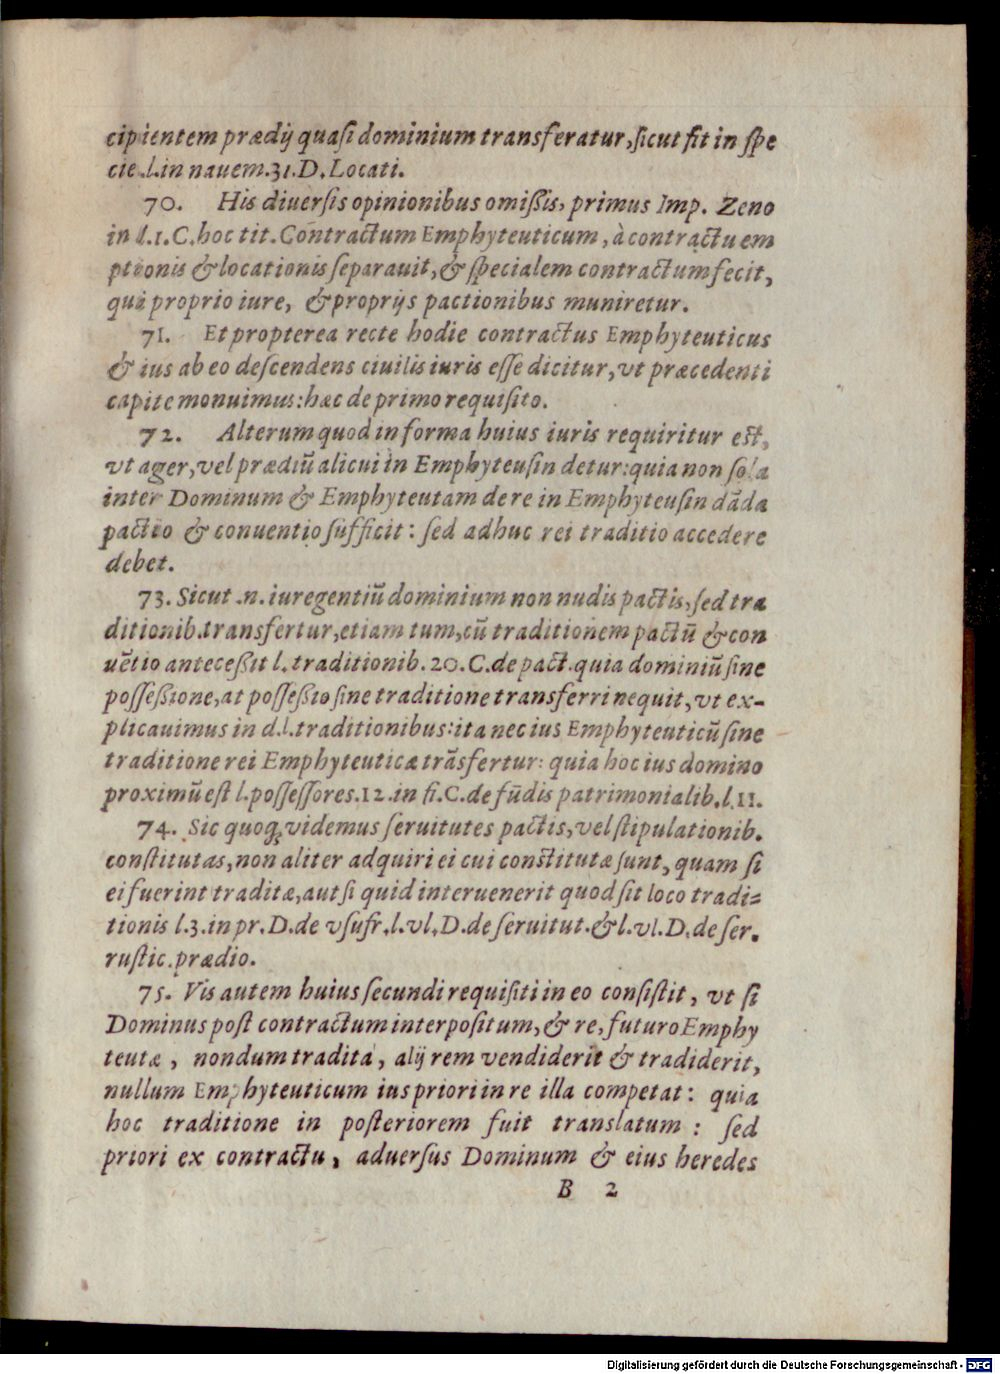 cipientem prædij quaſi dominium transferatur, ſicut fit in ſpe
cie .l. in nauem. 31. D. Locati.
70. His diuerſis opinionibus omiſſis, primus Imp. Zeno
in l. 1. C. hoc tit. Contractum Emphyteuticum, à contractu em
ptionis & locationis ſeparauit, & ſpecialem contractum fecit,
qui proprio iure, & proprijs pactionibus muniretur.
71. Et propterea recte hodie contractus Emphyteuticus
& ius ab eo deſcendens ciuilis iuris eſſe dicitur, vt præcedenti
capite monuimus: hæc de primo requiſito.
72. Alterum quod in forma huius iuris requiritur eſt,
vt ager, vel prædiū alicui in Emphyteuſin detur: quia non ſola
inter Dominum & Emphyteutam de re in Emphyteuſin dāda
pactio & conuentio ſufficit: ſed adhuc rei traditio accedere
debet.
73. Sicut .n. iure gentiū dominium non nudis pactis, ſed tra
ditionib. transfertur, etiam tum, cū traditionem pactū & con
uētio anteceßit l. traditionib. 20. C. de pact. quia dominiū ſine
poſſeßione, at poſſeßio ſine traditione transferri nequit, vt ex-
plicauimus in d. l. traditionibus: ita nec ius Emphyteuticū ſine
traditione rei Emphyteuticæ trāsfertur: quia hoc ius domino
proximū eſt l. poſſeſſores. 12. in fi. C. de fūdis patrimonialib. l. 11.
74. Sic quoq; videmus ſeruitutes pactis, vel ſtipulationib.
conſtitutas, non aliter adquiri ei cui conſtitutæ ſunt, quam ſi
ei fuerint traditæ, aut ſi quid interuenerit quod ſit loco tradi-
tionis l. 3. in pr. D. de vſufr. l. vl. D. de ſeruitut. & l. vl. D. de ſer.
ruſtic. prædio.
75. Vis autem huius ſecundi requiſiti in eo conſiſtit, vt ſi
Dominus poſt contractum interpoſitum, & re, futuro Emphy
teutæ, nondum tradita, alij rem vendiderit & tradiderit,
nullum Emphyteuticum ius priori in re illa competat: quia
hoc traditione in poſteriorem fuit translatum: ſed
priori ex contractu, aduerſus Dominum & eius heredes
B 2
Digitalisierung gefördert durch die Deutsche Forschungsgemeinschaft - DFG